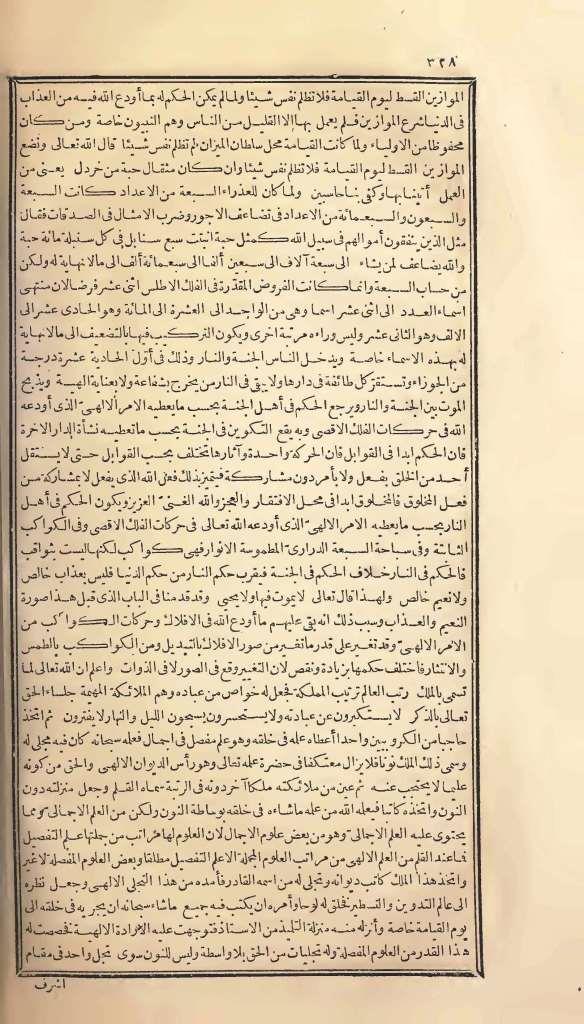 ٣٢٨
الموازين القسط ليوم القيامة فلا تظلم نفس شيئا ولما لم يمكن الحكم له بما أودع الله فيه من العذاب
فى الدنيا شرع الموازين فلم يعمل بها الا القليل من الناس وهم النبيون خاصة ومن كان
محفوظا من الاولياء ولما كانت القيامة محل سلطان الميزان لم تظلم نفس شيئا قال الله تعالى ونضع
الموازين القسط ليوم القيامة فلا تظلم نفس شيئا وان كان مثقال حبة من خردل يعنى من
العمل أتينا بها وكفى بنا حاسبين ولما كان للعذراء السبعة من الاعداد كانت السبعة
والسبعون والسبعمائة من الاعداد فى تضاعف الاجور وضرب الامثال فى الصدقات فقال
مثل الذين ينفقون أموالهم فى سبيل الله كمثل حبة انبتت سبع سنابل فى كل سنبلة مائة حبة
والله يضاعف لمن يشاء الى سبعة آلاف الى سبعين ألفا الى سبعمائة ألف الى ما لا نهاية له ولكن
من حساب السبعة وانما كانت الفروض المقدّرة فى الفلك الاطلس اثنى عشر فرضا لان منتهى
اسماء العدد الى اثنى عشر اسما وهى من الواحد الى العشرة الى المائة وهو الحادى عشر الى
الالف وهو الثانى عشر وليس وراءه مرتبة اخرى ويكون التركيب فيها بالتضعيف الى ما لا نهاية
له بهذه الاسماء خاصة ويدخل الناس الجنة والنار وذلك فى أوّل الحادية عشرة درجة
من الجوزاء وتستقرّ كل طائفة فى دارها ولا يبقى فى النار من يخرج بشفاعة ولا بعناية الهية ويذبح
الموت بين الجنة والنار ويرجع الحكم فى أهل الجنة بحسب ما يعطيه الامر الالهىّ الذى أودعه
الله فى حركات الفلك الاقصى وبه يقع التكوين فى الجنة بحسب ما تعطيه نشأة الدار الآخرة
فان الحكم ابدا فى القوابل فان الحركة واحدة وآثارها تختلف بحسب القوابل حتى لا يستقل
أحد من الخلق بفعل ولا بأمر دون مشاركة فيتميز بذلك فعل الله الذى يفعل لا بمشاركة من
فعل المخلوق فالمخلوق ابدا فى محل الافتقار والعجز والله الغنىّ العزيز ويكون الحكم فى أهل
النار بحسب ما يعطيه الامر الالهىّ الذى أودعه الله تعالى فى حركات الفلك الاقصى وفى الكواكب
الثابتة وفى سباحة السبعة الدرارى المطموسة الانوار فهى كواكب لكنها ليست بثواقب
فالحكم فى النار خلاف الحكم فى الجنة فيقرب حكم النار من حكم الدنيا فليس بعذاب خالص
ولا نعيم خالص ولهذا قال تعالى لا يموت فيها ولا يحيى وقد قدمنا فى الباب الذى قبل هذا صورة
النعيم والعذاب وسبب ذلك انه بقى عليهم ما أودع الله فى الافلاك وحركات الكواكب من
الامر الالهىّ وقد تغير على قدر ما تغير من صور الافلاك بالتبديل ومن الكواكب بالطمس
والانتثار فاختلف حكمها بزيادة ونقص لان التغيير وقع فى الصور لا فى الذوات واعلم ان الله تعالى لما
تسمى بالملك رتب العالم ترتيب المملكة فجعل له خواص من عباده وهم الملائكة المهيمة جلساء الحق
تعالى بالذكر لا يستكبرون عن عبادته ولا يستحسرون يسبحون الليل والنهار لا يفترون ثم اتخذ
حاجبا من الكروبيين واحدا أعطاه علمه فى خلقه وهو علم مفصل فى اجمال فعلمه سبحانه كان فيه مجلى له
وسمى ذلك الملك نونا فلا يزال معتكفا فى حضرة علمه تعالى وهو رأس الديوان الالهى والحق من كونه
عليما لا يحتجب عنه ثم عين من ملائكته ملكا آخر دونه فى الرتبة سماه القلم وجعل منزلته دون
النون واتخذه كاتبا فيعلمه الله من علمه ما شاءه فى خلقه بوساطة النون ولكن من العلم الاجمالى ومما
يحتوى عليه العلم الاجمالى وهو من بعض علوم الاجمال لان العلوم لها مراتب من جملتها علم التفصيل
فما عند القلم من العلم الالهى من مراتب العلوم المجملة الا علم التفصيل مطلقا وبعض العلوم المفصلة لا غير
واتخذ هذا الملك كاتب ديوانه وتجلى له من اسمه القادر فأمده من هذا التجلى الالهى وجعل نظره
الى عالم التدوين والتسطير فخلق له لوحا وأمره ان يكتب فيه جميع ما شاء سبحانه ان يجريه فى خلقه الى
يوم القيامة خاصة وأنزله منه منزلة التلميذ من الاستاذ فتوجهت عليه الارادة الالهية فخصصت له
هذا القدر من العلوم المفصلة وله تجليات من الحق بلا واسطة وليس للنون سوى تجل واحد فى مقام
اشرف